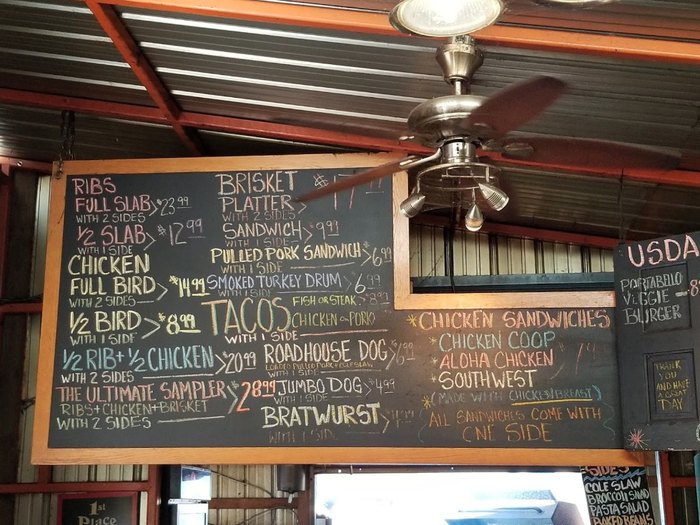 RIBS
FULL SLAB > $23.99
WITH 2 SIDES
1/2 SLAB > $12.99
WITH 1 SIDE
CHICKEN
FULL BIRD > $14.99
WITH 2 SIDES
1/2 BIRD > $8.99
WITH 1 SIDE
1/2 RIB + 1/2 CHICKEN > $20.99
WITH 2 SIDES
THE ULTIMATE SAMPLER > $28.99
RIBS + CHICKEN + BRISKET
WITH 2 SIDES
BRISKET
PLATTER
WITH 2 SIDES
SANDWICH > $9.99
WITH 1 SIDE
PULLED PORK SANDWICH > $6.99
WITH 1 SIDE
SMOKED TURKEY DRUM > $6.99
WITH 1 SIDE
TACOS
FISH OR STEAK
CHICKEN OR PORK
WITH 1 SIDE
ROADHOUSE DOG
WITH 1 SIDE
JUMBO DOG
WITH 1 SIDE
BRATWURST
WITH 1 SIDE
* CHICKEN SANDWICHES
* CHICKEN COOP
* ALOHA CHICKEN
* SOUTHWEST
* (MADE WITH CHICKEN BREAST)
* ALL SANDWICHES COME WITH
ONE SIDE
USDA
PORTABELLO
VEGGIE
BURGER
THANK
YOU
AND HAVE
A GREAT
DAY
1st
Place
SIDES
COLE SLAW
BROCCOLI SALAD
PASTA SALAD
BAKED BEANS